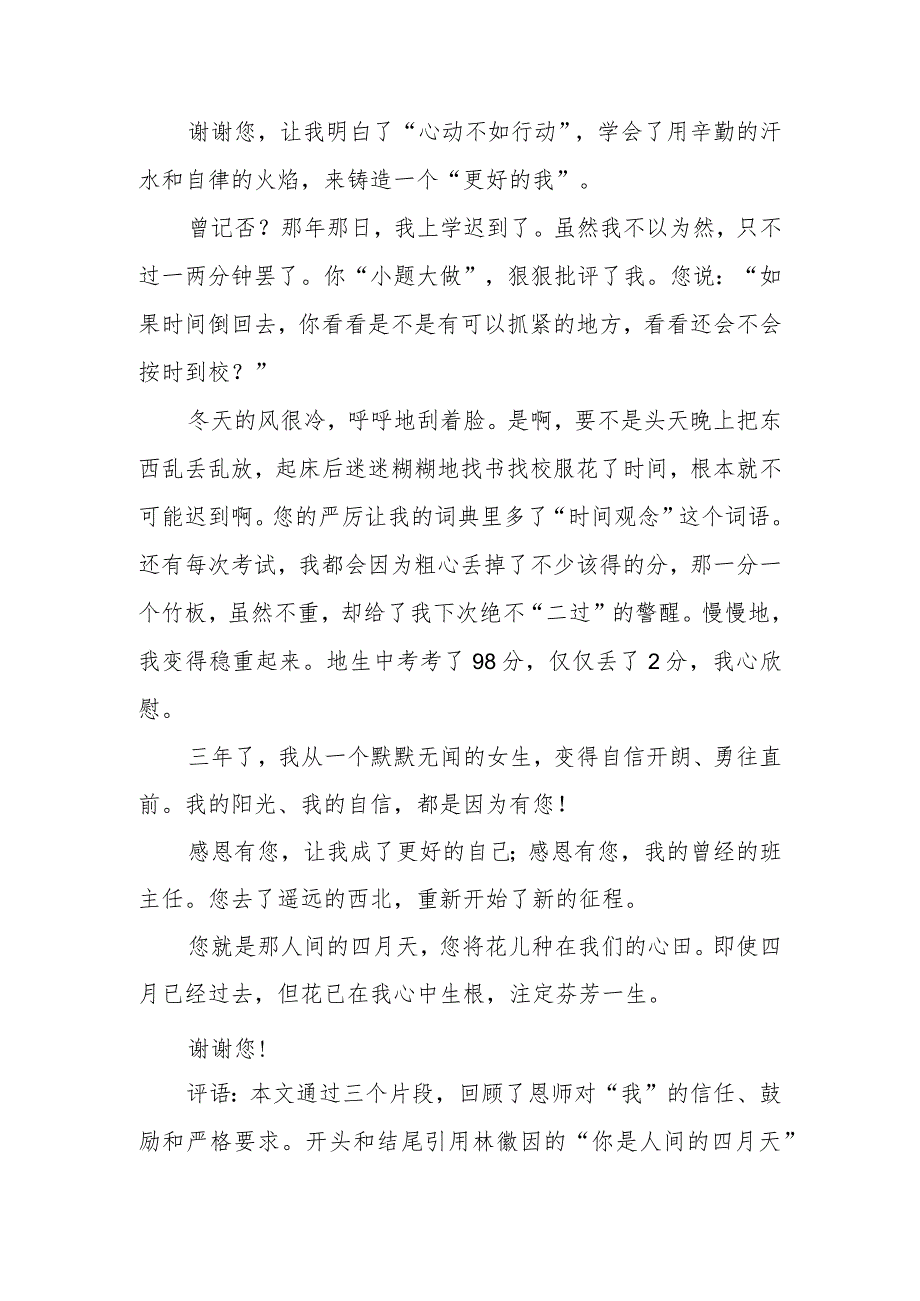 谢谢您，让我明白了“心动不如行动”，学会了用辛勤的汗
水和自律的火焰，来铸造一个“更好的我”。
曾记否？那年那日，我上学迟到了。虽然我不以为然，只不
过一两分钟罢了。你“小题大做”，狠狠批评了我。您说：“如
果时间倒回去，你看看是不是有可以抓紧的地方，看看还会不会
按时到校？”
冬天的风很冷，呼呼地刮着脸。是啊，要不是头天晚上把东
西乱丢乱放，起床后迷迷糊糊地找书找校服花了时间，根本就不
可能迟到啊。您的严厉让我的词典里多了“时间观念”这个词语。
还有每次考试，我都会因为粗心丢掉了不少该得的分，那一分一
个竹板，虽然不重，却给了我下次绝不“二过”的警醒。慢慢地，
我变得稳重起来。地生中考考了98分，仅仅丢了2分，我心欣
慰。
三年了，我从一个默默无闻的女生，变得自信开朗、勇往直
前。我的阳光、我的自信，都是因为有您！
感恩有您，让我成了更好的自己；感恩有您，我的曾经的班
主任。您去了遥远的西北，重新开始了新的征程。
您就是那人间的四月天，您将花儿种在我们的心田。即使四
月已经过去，但花已在我心中生根，注定芬芳一生。
谢谢您！
评语：本文通过三个片段，回顾了恩师对“我”的信任、鼓
励和严格要求。开头和结尾引用林徽因的“你是人间的四月天”